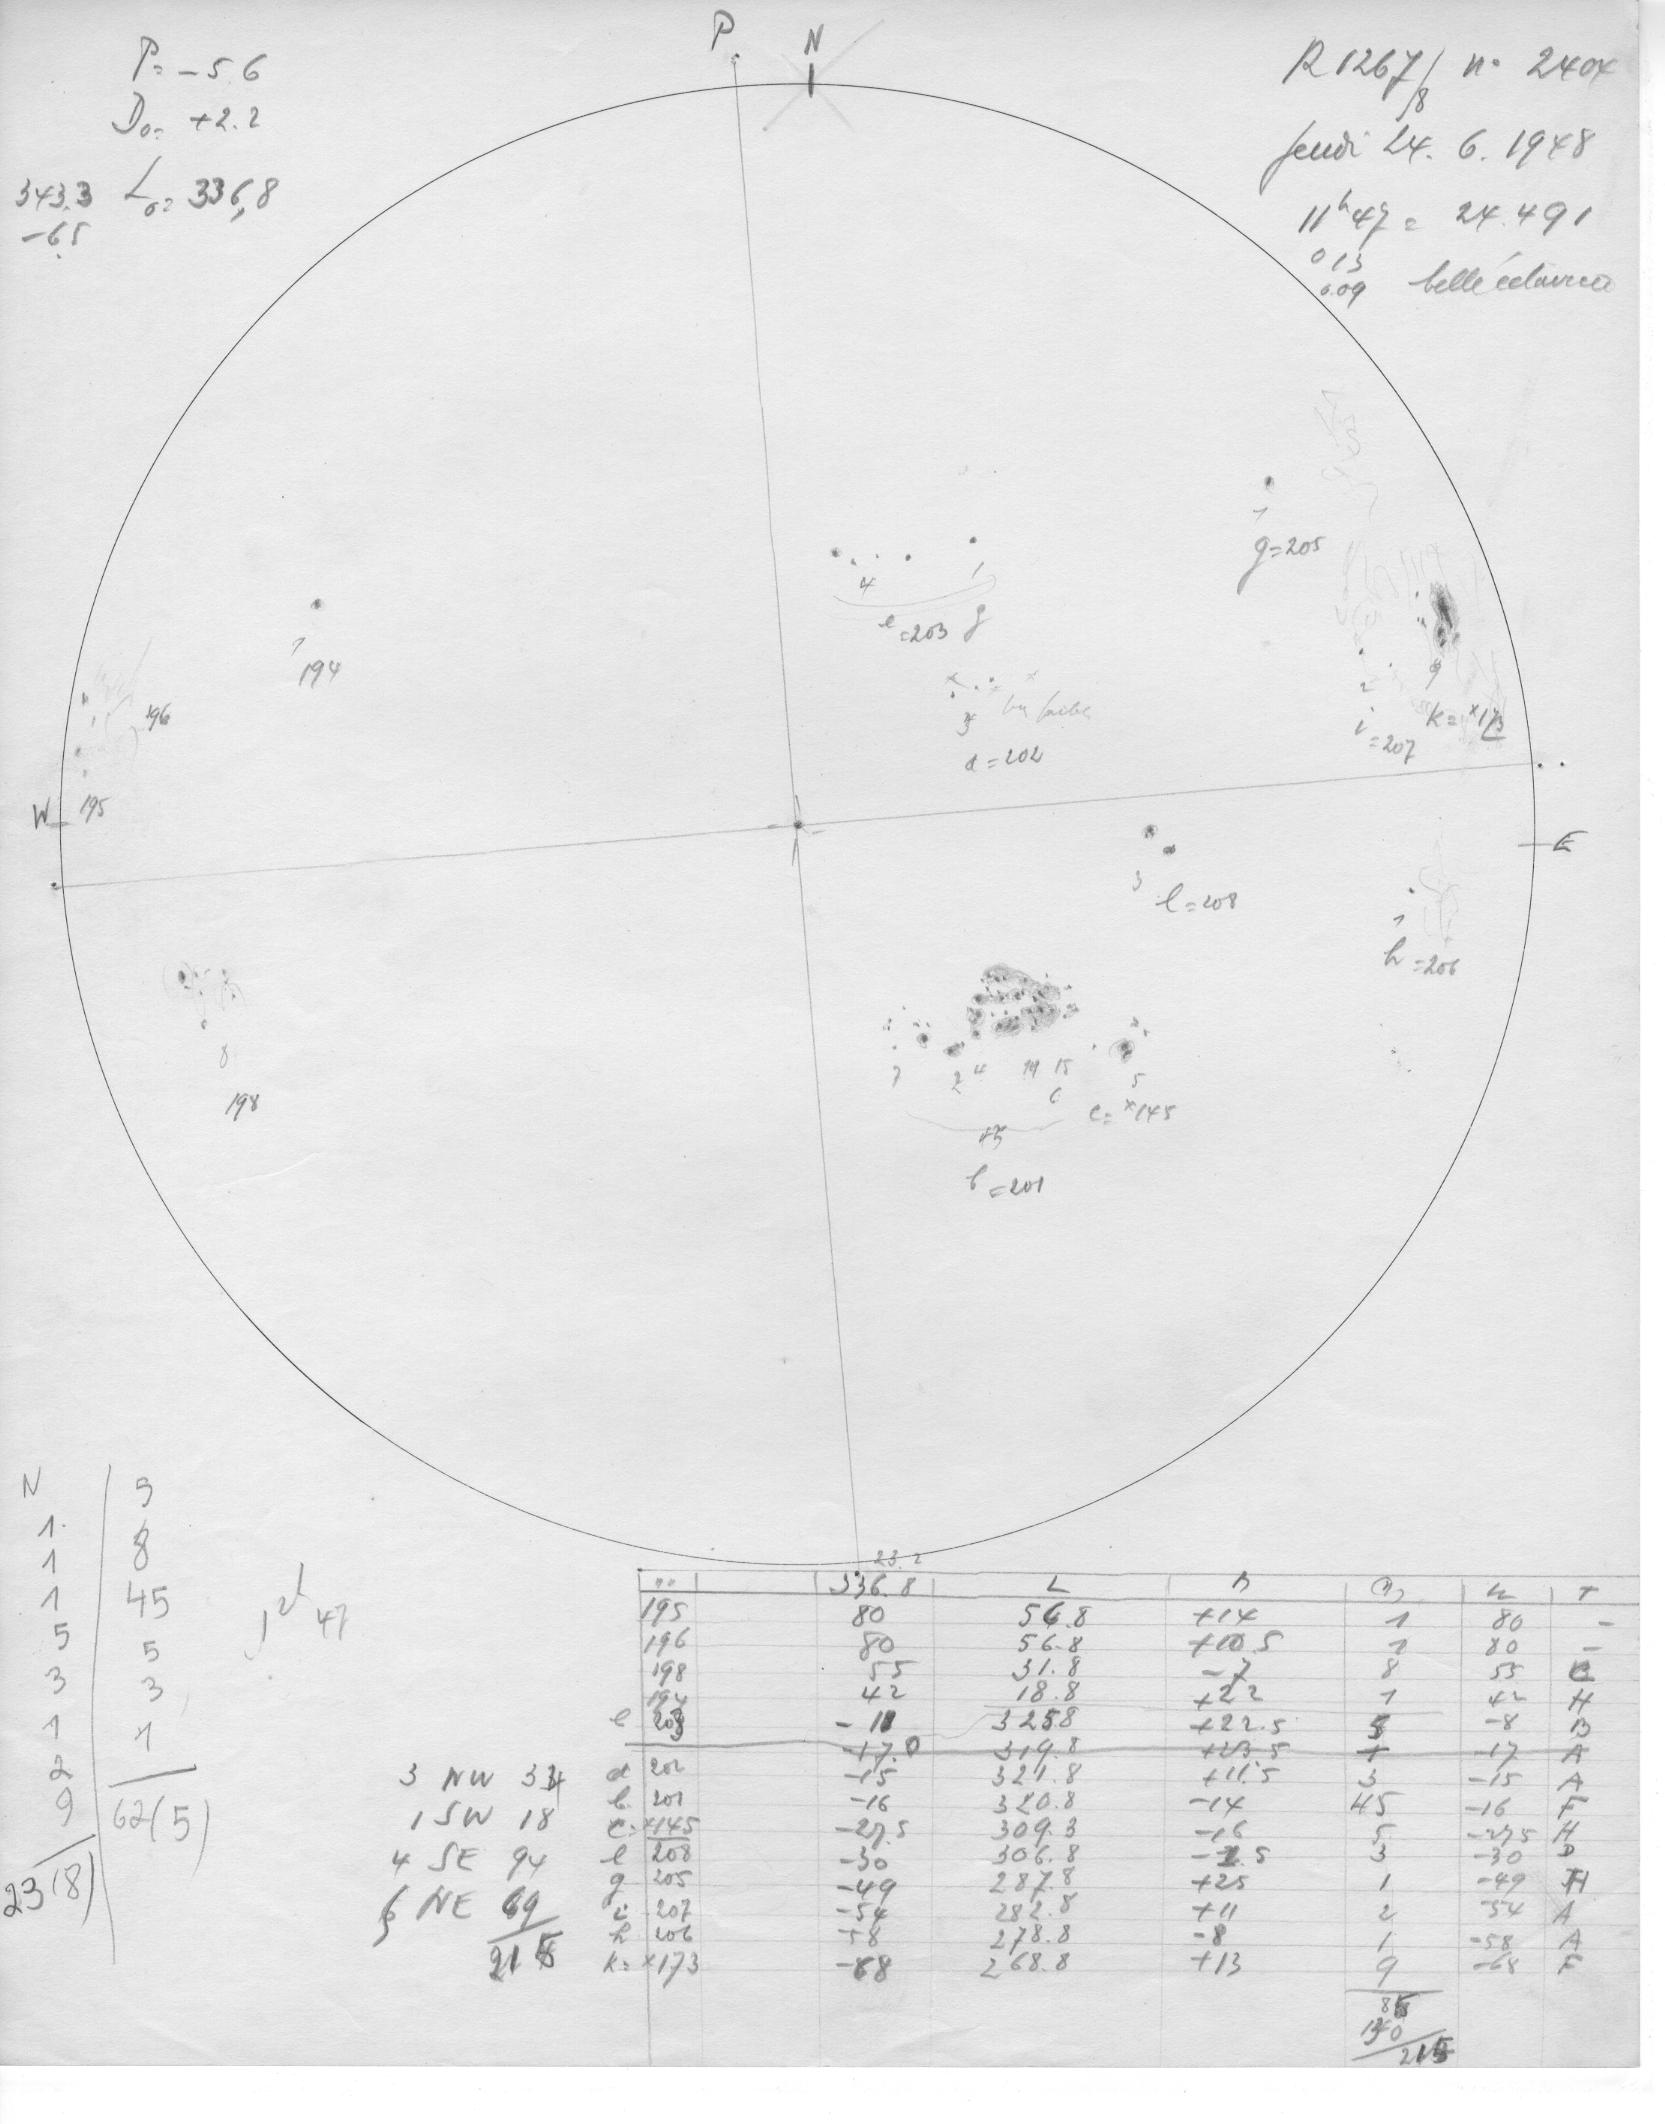 P= -5.6
D₀= +2.2
343.3 L₀= 336,8
-6.5
P N
R 1267/8 n° 2404
jeudi 24. 6. 1948
11ʰ47 = 24.491
013
6.09 belle
1
g=205
4 1
e=203 f
1
194
196
9
2
K= ×173
i=207
3
a=202
195
W
E
3
l=208
1
h=206
8
198
7 2 4 19 15
6
5
c= ×145
45
b=201
N 5
1 8
1 45
1 5
5 3
3 1
1 62(5)
2
9
23(8)
47
3 NW 34
1 SW 18
4 SE 94
6 NE 69
215
23.2
n° 336.8 L B T
195 80 56.8 +14 1 80 -
196 80 56.8 +10.5 1 80 -
198 55 31.8 -7 8 55
194 42 18.8 +22 1 42 H
e 203 -11 325.8 +22.5 5 -8 B
-17.0 319.8 +23.5 1 -17 A
a 202 -15 321.8 +11.5 3 -15 A
b 201 -16 320.8 -14 45 -16 F
c= ×145 -27.5 309.3 -16 5 -27.5 H
l 208 -30 306.8 3 -30 D
g 205 -49 287.8 +25 1 -49 H
i 207 -54 282.8 +11 2 -54 A
h 206 -58 278.8 -8 1 -58 A
k= ×173 -68 268.8 +13 9 -68 F
85
130
215